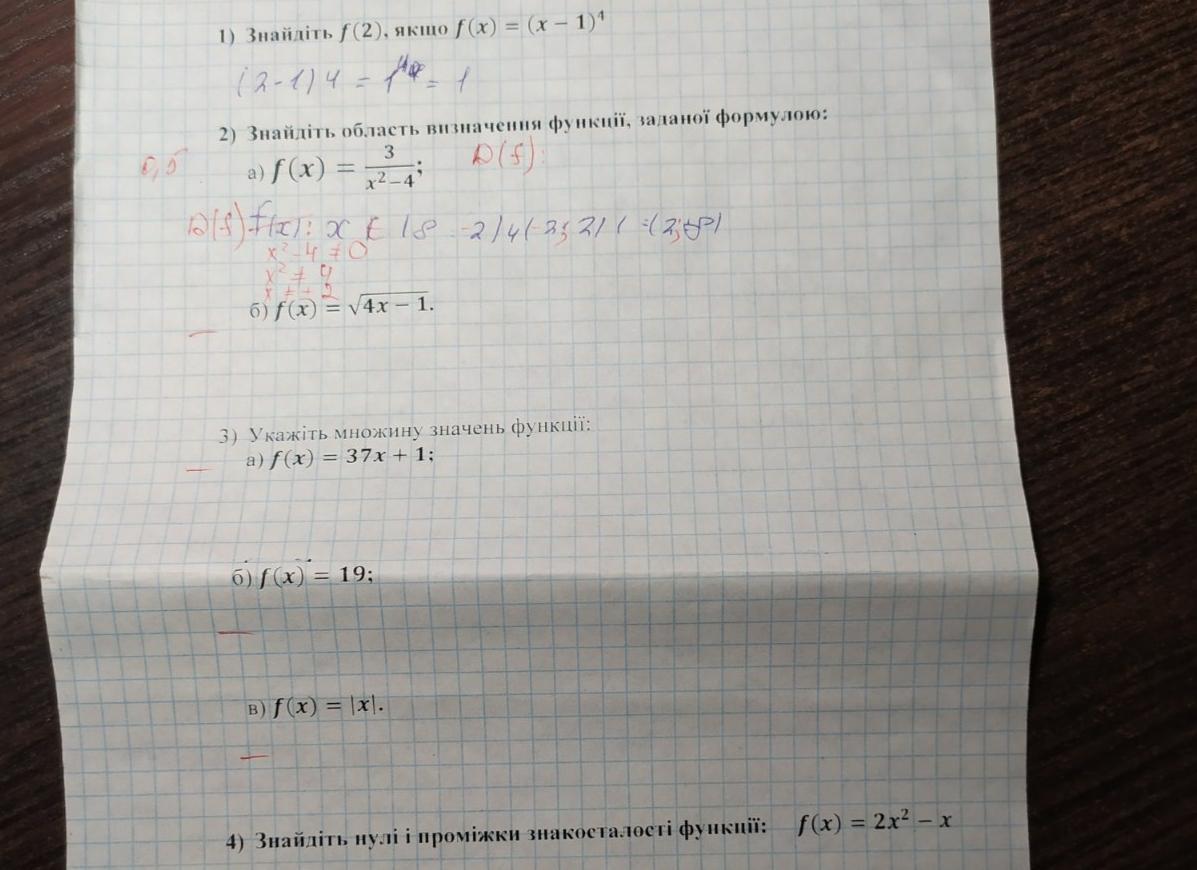 1) Знайдіть f(2), якщо f(x) = (x − 1)⁴
(2-1)4 = 1⁴ = 1
2) Знайдіть область визначення функції, заданої формулою:
0,5 а) f(x) = 3/(x²−4); D(f):
D(f) f(x): x ∈ (∞ -2) ∪ (-2; 2) (2; +∞)
x² - 4 ≠ 0
x² ≠ 4
x ≠ ± 2
б) f(x) = √(4x − 1).
3) Укажіть множину значень функції:
а) f(x) = 37x + 1;
б) f(x) = 19;
в) f(x) = |x|.
4) Знайдіть нулі і проміжки знакосталості функції: f(x) = 2x² − x